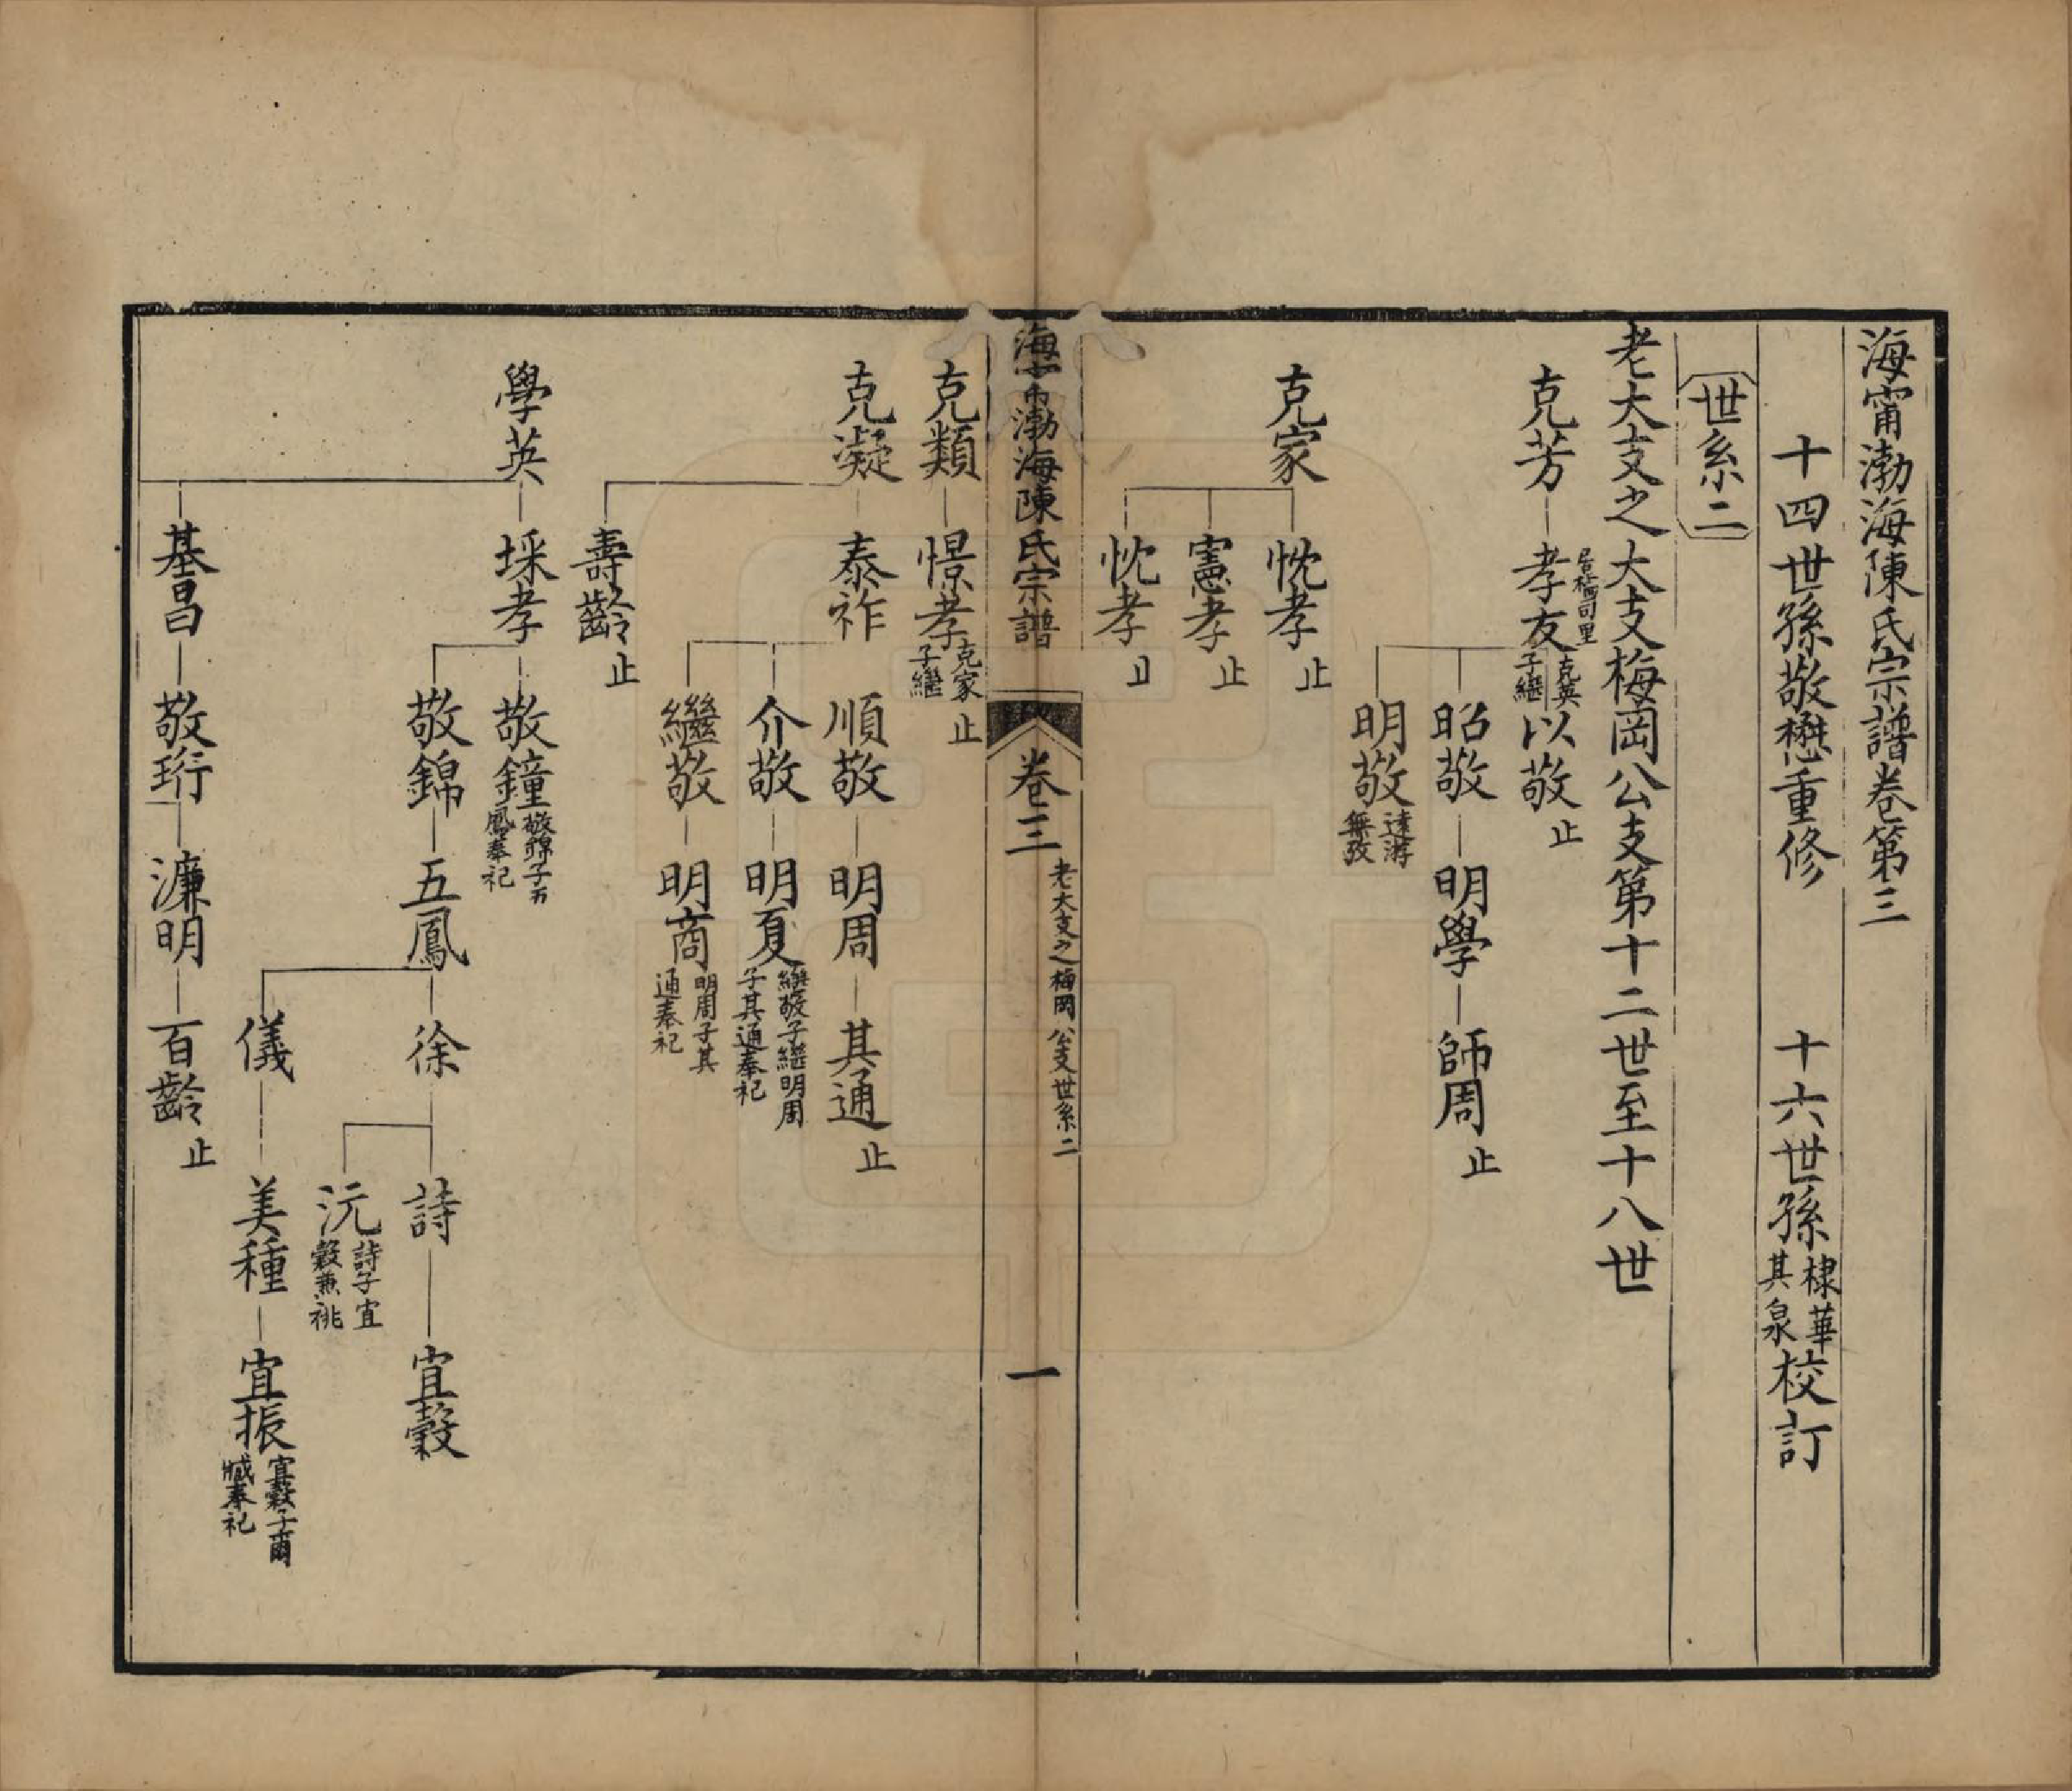 海甯渤海陳氏宗譜卷第三
十四世孫敬懋重修　十六世孫棣華其泉校訂
世系二
老大支之大支梅岡公支第十二世至十八世
克芳
居梅司里
孝友
克英子繼
以敬
止
昭敬
明學
師周
止
明敬
遠游無攷
克家
忱孝
止
憲孝
止
忱孝
海甯渤海陳氏宗譜
卷三
老大支之梅岡公支世系二
一
克類
憬孝
克家子繼
止
克凝
泰祚
順敬
明周
其通
止
介敬
明夏
繼敬子繼明周子其通奉祀
繼敬
明商
明周子其通奉祀
壽齡
止
學英
埰孝
敬鐘
敬錦子五鳳奉祀
敬錦
五鳳
徐
詩
宜穀
沅
詩子宜穀兼祧
儀
美種
宜振
宜穀子爾臧奉祀
基昌
敬珩
濂明
百齡
止